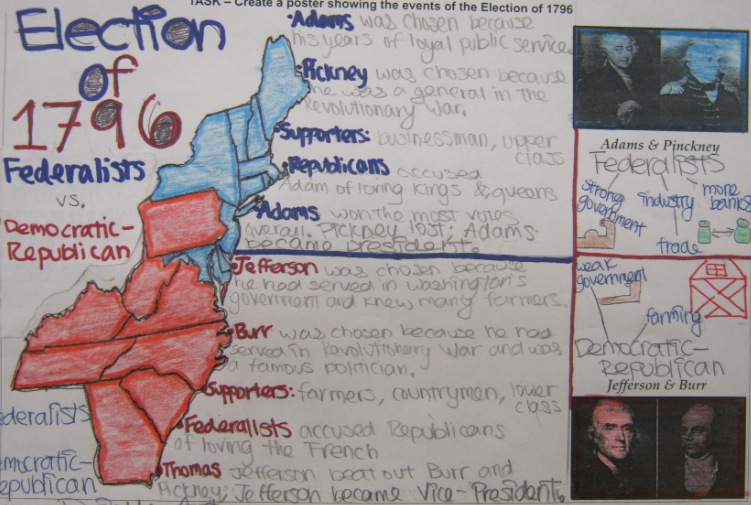 TASK – Create a poster showing the events of the Election of 1796
Election
of
1796
Federalists
vs.
Democratic-
Republican
•Adams was chosen because
his years of loyal public service.
•Pickney was chosen because
he was a general in the
Revolutionary War.
•Supporters: businessman, upper
class
•Republicans accused
Adam of loving kings & queens
•Adams won the most votes
overall. Pickney lost; Adams
became president.
•Jefferson was chosen because
he had served in Washington's
government and knew many farmers.
•Burr was chosen because he had
served in Revolutionary War and was
a famous politician.
•Supporters: farmers, countrymen, lower
class
•Federalists accused Republicans
of loving the French
•Thomas Jefferson beat out Burr and
Pickney; Jefferson became Vice-President.
ederalists
emocratic-
epublican
Adams & Pinckney
Federalists
strong
government
industry
more
banks
trade
weak
government
farming
Democratic-
Republican
Jefferson & Burr